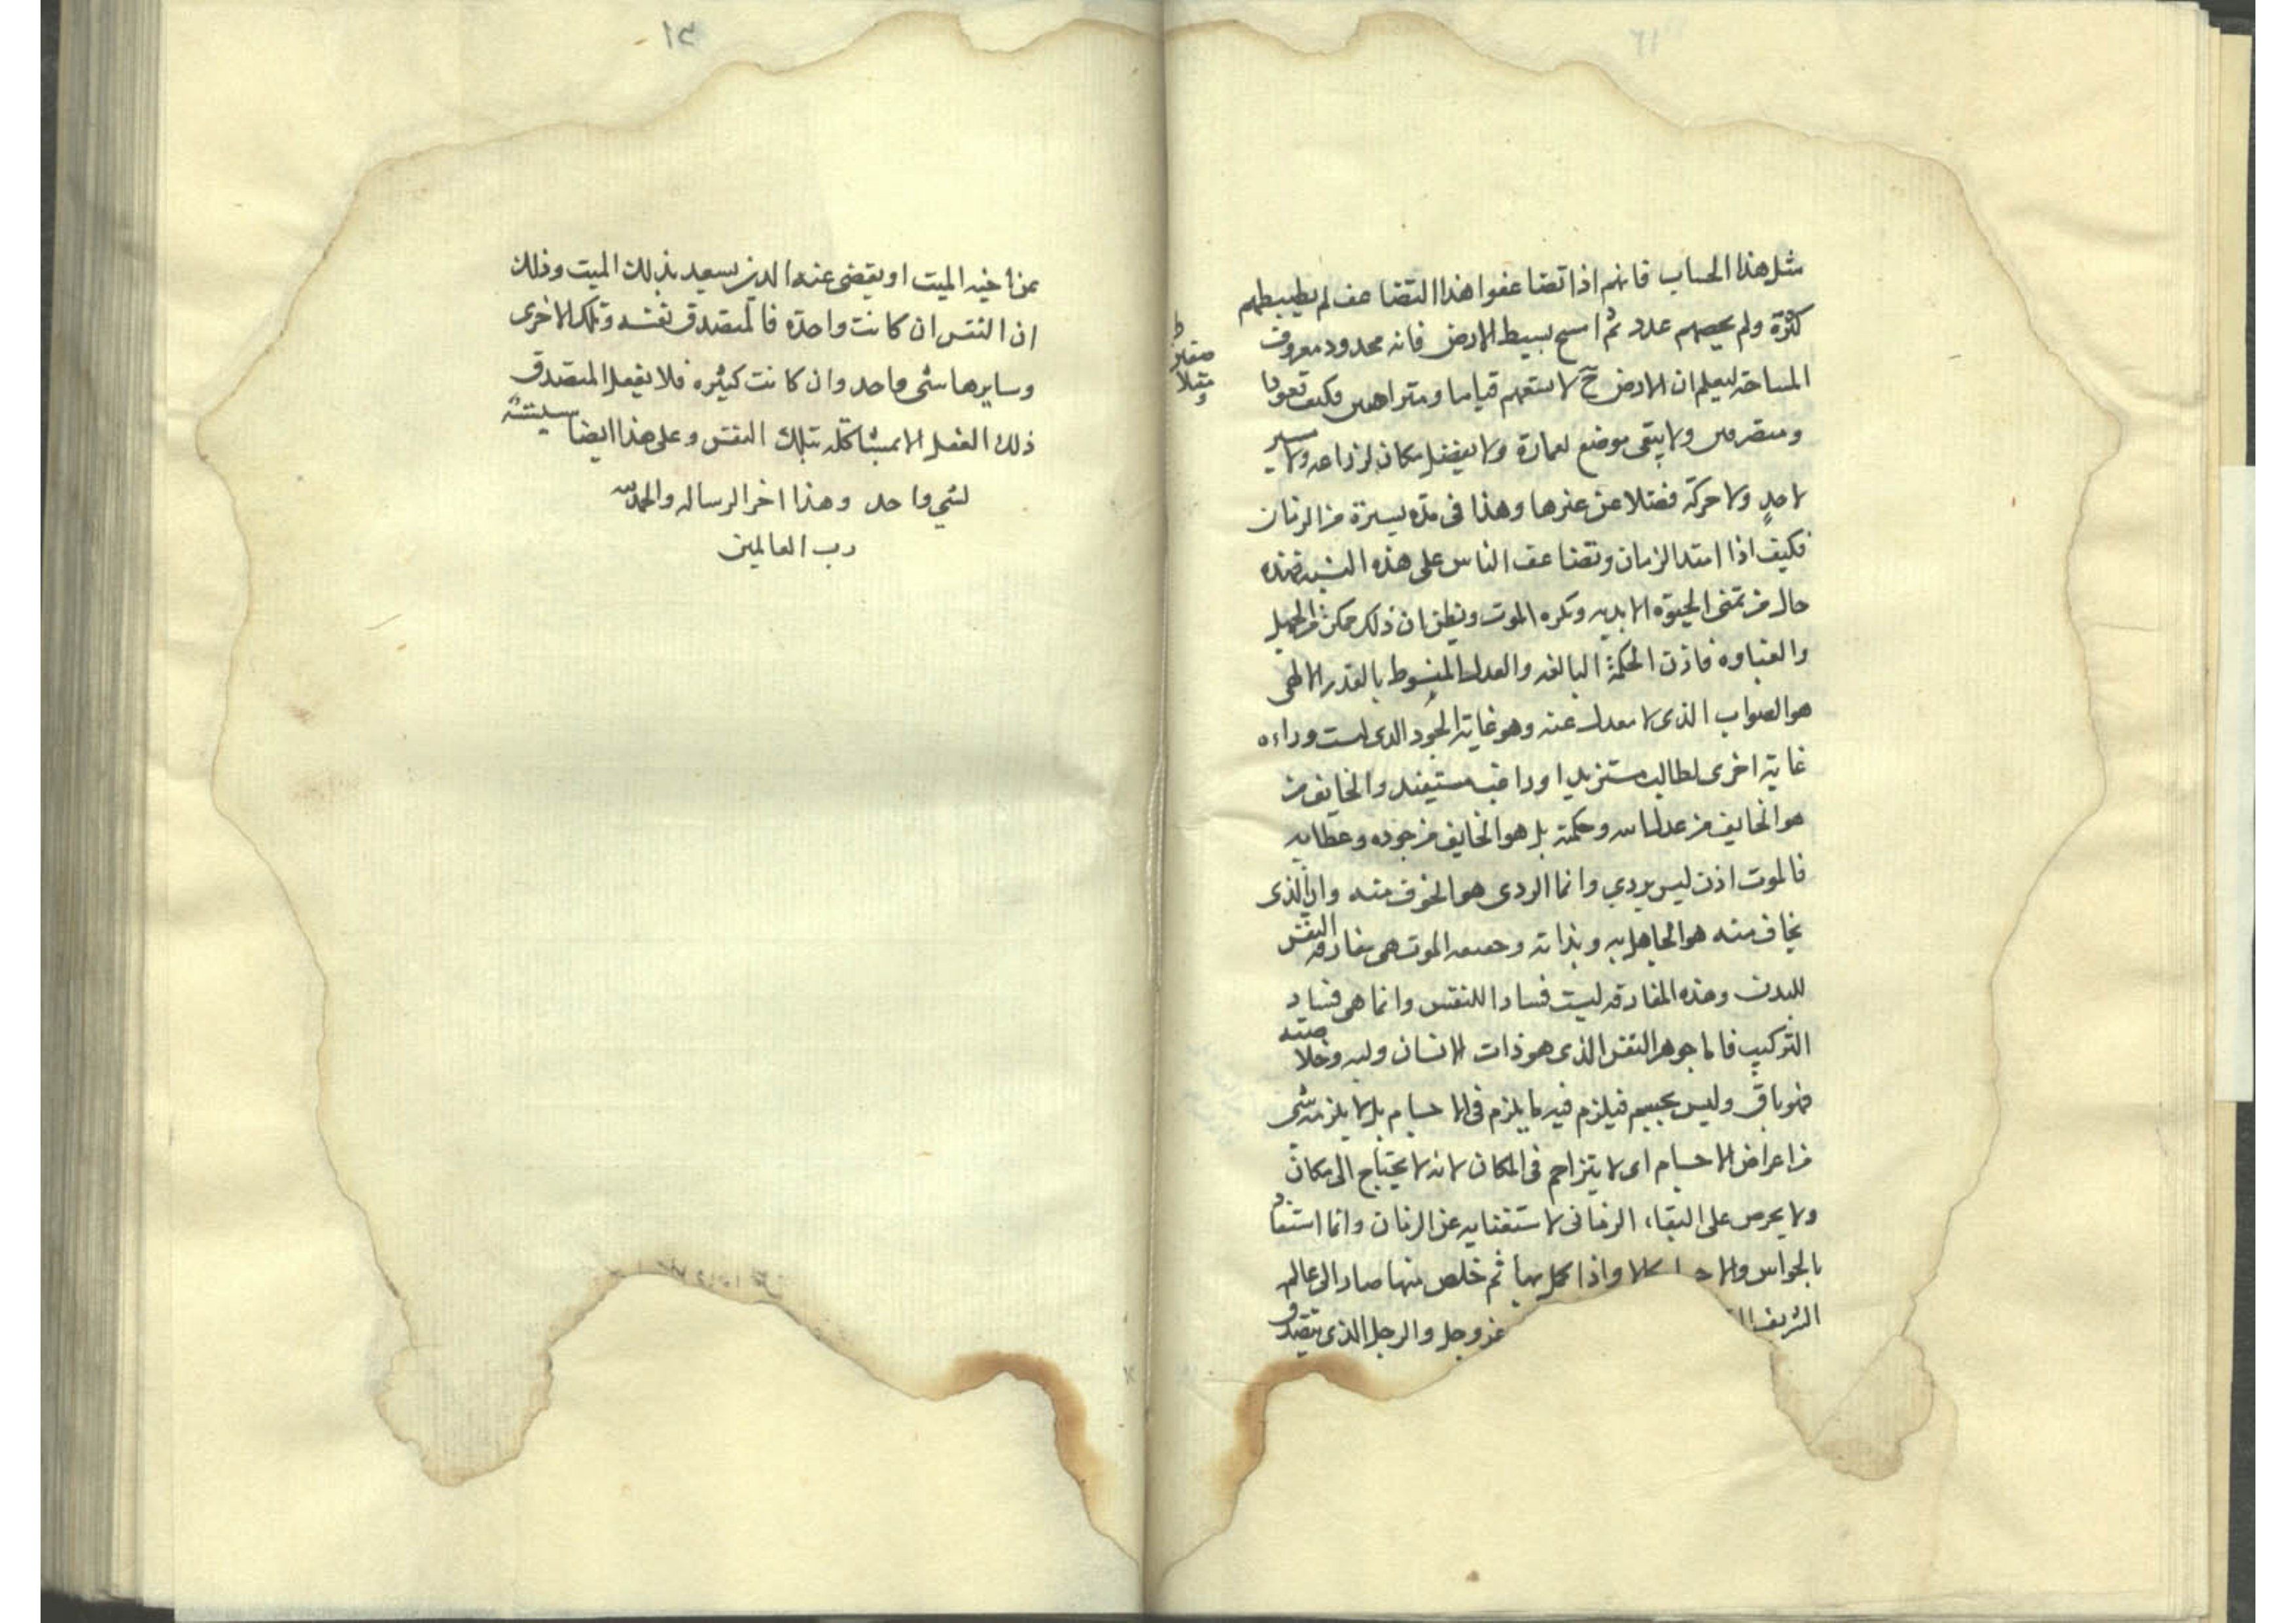 مثل هذا الحساب فانهم اذا تضاعفوا هذا التضاعف لم يضبطهم
كثرة ولم يحصهم عدد ثم امسح بسيط الارض فانه محدود معروف
المساحة ليعلم ان الارض ح لا تسعهم قياما ومتراصين فكيف قعودا
ومتصرفين ولا يبقى موضع لعمارة ولا يفضل مكان لزراعه ولا مسير
لاحد ولا حركة فضلا عن غيرها وهذا فى مدة يسيرة من الزمان
فكيف اذا امتد الزمان وتضاعف الناس على هذه النسبه فهذه
حال من تمنى الحيوة الابديه وتكره الموت ويظن ان ذلك ممكن من الجهل
والغباوه فاذن الحكمة البالغه والعدل المبسوط بالقدر الالهى
هو الصواب الذى لا معدل عنه وهو غاية الجود الذى ليست وراءه
غاية اخرى لطالب مستزيد او راغب مستفيد والخايف من
هو الخايف من عدل الله وحكمته بل هو الخايف من جوده وعطايه
فالموت اذن ليس بردي وانما الردى هو الخوف منه وان الذى
يخاف منه هو الجاهل به وبذاته وحقيقه الموت هى مفارقه النفس
للبدن وهذه المفارقه ليست فسادا للنفس وانما هى فساد
التركيب فاما جوهر النفس الذى هو ذات الانسان ولبه وخلاصته
فهو باق وليس بجسم فيلزم فيه ما يلزم فى الاجسام بل لا يلزمه شى
من اعراض الاجسام اى لا يتزاحم فى المكان لانه لا يحتاج الى مكان
ولا يحرص على البقاء الزمانى لاستغنايه عن الزمان وانما استفاد
بالحواس والاجسام كمالا واذا كمل بها ثم خلص منها صار الى عالمه
الشريف عز وجل والرجل الذى يتصدق
١٣
عن اخيه الميت او يقضى عنه الدين يسعيد بذلك الميت وذلك
ان النفس ان كانت واحدة فالمتصدق نفسه وتلك الاخرى
وسايرها شى واحد وان كانت كثيره فلا يفعل المتصدق
ذلك الفعل الا بمشاكلة تلك النفس وعلى هذا ايضا
لشي واحد وهذا اخر الرساله والحمد لله
رب العالمين